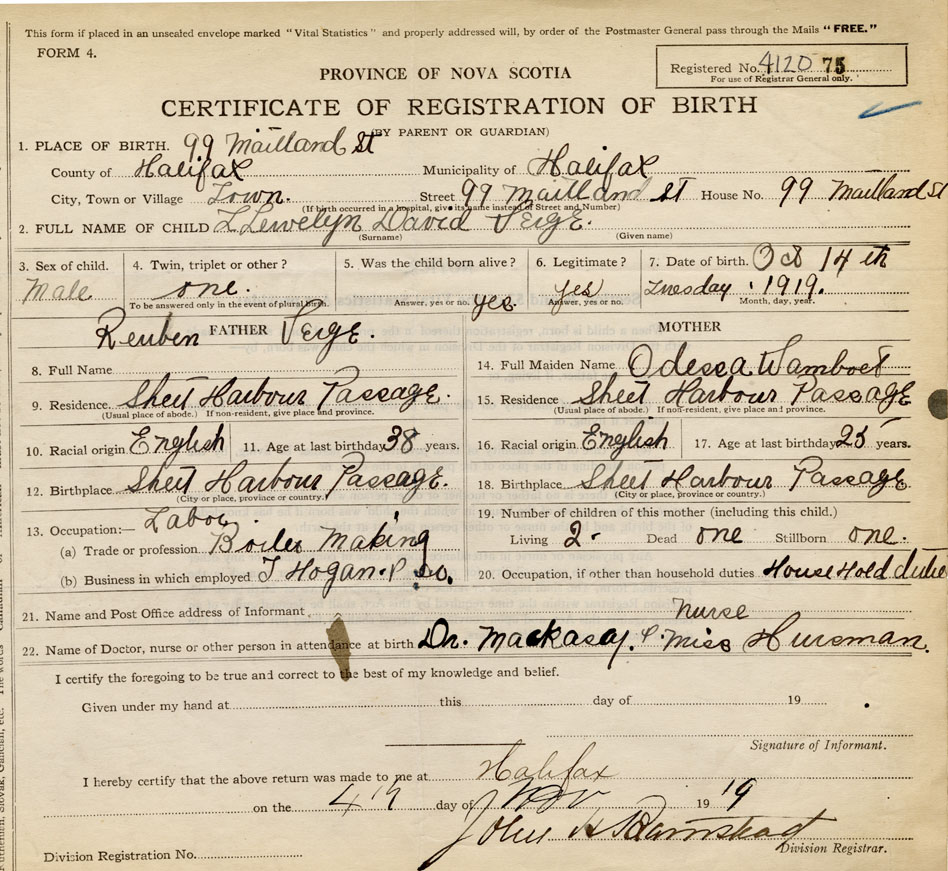 This form if placed in an unsealed envelope marked "Vital Statistics" and properly addressed will, by order of the Postmaster General pass through the Mails "FREE."
FORM 4.
Registered No. 4120 75
For use of Registrar General only.
PROVINCE OF NOVA SCOTIA
CERTIFICATE OF REGISTRATION OF BIRTH
(BY PARENT OR GUARDIAN)
1. PLACE OF BIRTH. 99 Maitland St
County of Halifax Municipality of Halifax
City, Town or Village Town. Street 99 Maitland St House No. 99 Maitland St
(If birth occurred in a hospital, give its name instead of Street and Number)
2. FULL NAME OF CHILD LLewelyn David
(Surname) (Given name)
3. Sex of child. 4. Twin, triplet or other? 5. Was the child born alive? 6. Legitimate? 7. Date of birth. Oct 14th
Male one. yes yes Tuesday 1919.
To be answered only in the event of plural birth. Answer, yes or no. Answer, yes or no. Month, day, year.
Reuben
FATHER MOTHER
8. Full Name 14. Full Maiden Name Odessa
9. Residence. Sheet Harbour Passage. 15. Residence Sheet Harbour Passage
(Usual place of abode.) If non-resident, give place and province. (Usual place of abode.) If non-resident, give place and province.
10. Racial origin English 11. Age at last birthday 38 years. 16. Racial origin English 17. Age at last birthday 25 years.
12. Birthplace Sheet Harbour Passage. 18. Birthplace Sheet Harbour Passage
(City or place, province or country.) (City or place, province or country.)
13. Occupation:— Labor 19. Number of children of this mother (including this child.)
(a) Trade or profession Boiler Making Living 2. Dead one Stillborn one.
(b) Business in which employed T Hogan 20. Occupation, if other than household duties House Hold dutie
21. Name and Post Office address of Informant
Nurse
22. Name of Doctor, nurse or other person in attendance at birth Dr. Mackasay. Miss Hursman.
I certify the foregoing to be true and correct to the best of my knowledge and belief.
Given under my hand at this day of 19
Signature of Informant.
I hereby certify that the above return was made to me at Halifax
on the 4th day of Nov 19 19
John A Barnstead
Division Registration No. Division Registrar.